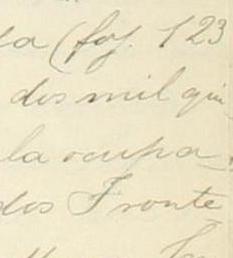 a (foj. 123
dos mil qui
la ocupa
dos Fronte